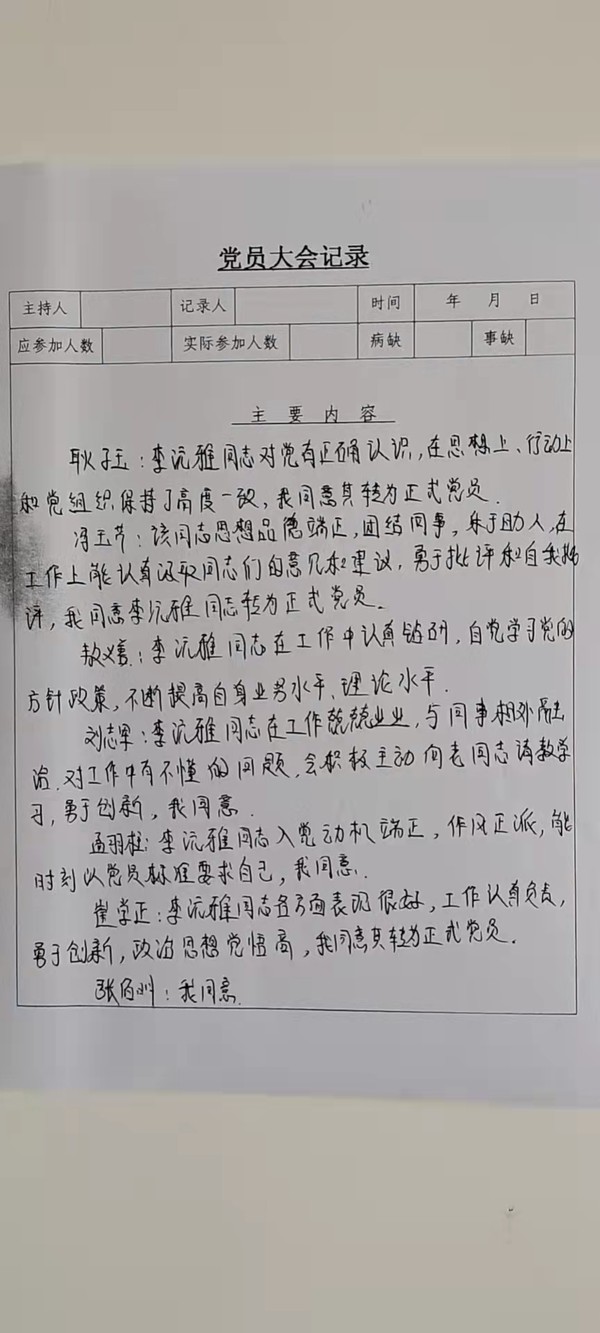 党员大会记录
主持人 记录人 时间 年 月 日
应参加人数 实际参加人数 病缺 事缺
主 要 内 容
耿子玉：李沅雅同志对党有正确认识，在思想上、行动上
和党组织保持了高度一致，我同意其转为正式党员．
冯玉芹：该同志思想品德端正，团结同事，乐于助人，在
工作上能认真汲取同志们的意见和建议，勇于批评和自我批
评，我同意李沅雅同志转为正式党员。
：李沅雅同志在工作中认真钻研，自觉学习党的
方针政策，不断提高自身业务水平、理论水平．
刘志果：李沅雅同志在工作兢兢业业，与同事相处融
洽．对工作中有不懂的问题，会积极主动向老同志请教学
习，勇于创新，我同意．
孟羽桂：李沅雅同志入党动机端正，作风正派，能
时刻以党员标准要求自己，我同意．
崔学正：李沅雅同志各方面表现很好，工作认真负责，
勇于创新，政治思想觉悟高，我同意其转为正式党员．
：我同意．